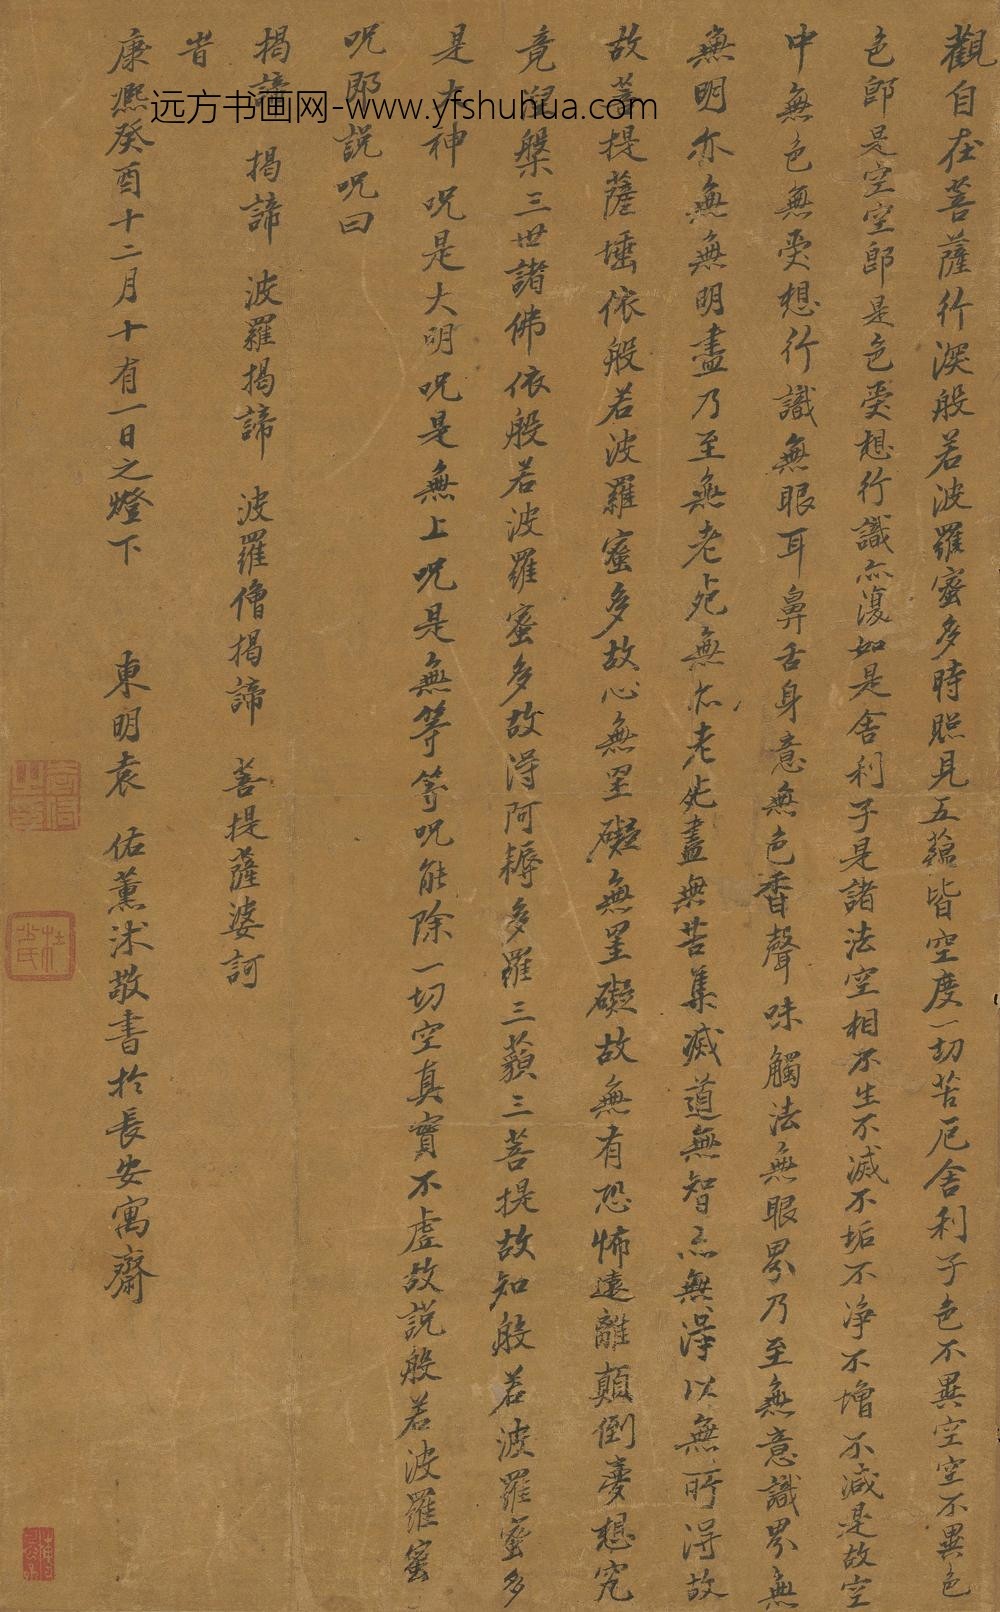 觀自在菩薩行深般若波羅蜜多時照見五蘊皆空度一切苦厄舍利子色不異空空不異色
色即是空空即是色受想行識亦復如是舍利子是諸法空相不生不滅不垢不淨不增不減是故空
中無色無受想行識無眼耳鼻舌身意無色香聲味觸法無眼界乃至無意識界無
無明亦無無明盡乃至無老死無亦老死盡無苦集滅道無智亦無得以無所得故
故菩提薩埵依般若波羅蜜多故心無罣礙無罣礙故無有恐怖遠離顛倒夢想究
竟涅槃三世諸佛依般若波羅蜜多故得阿耨多羅三藐三菩提故知般若波羅蜜多
是大神呪是大明呪是無上呪是無等等呪能除一切空真實不虛故説般若波羅蜜
呪即説呪曰
揭諦 揭諦 波羅揭諦 波羅僧揭諦 菩提薩婆訶
旹
康熙癸酉十二月十有一日之燈下 東明袁佑薰沐敬書於長安寓齋
远方书画网-www.yfshuhua.com